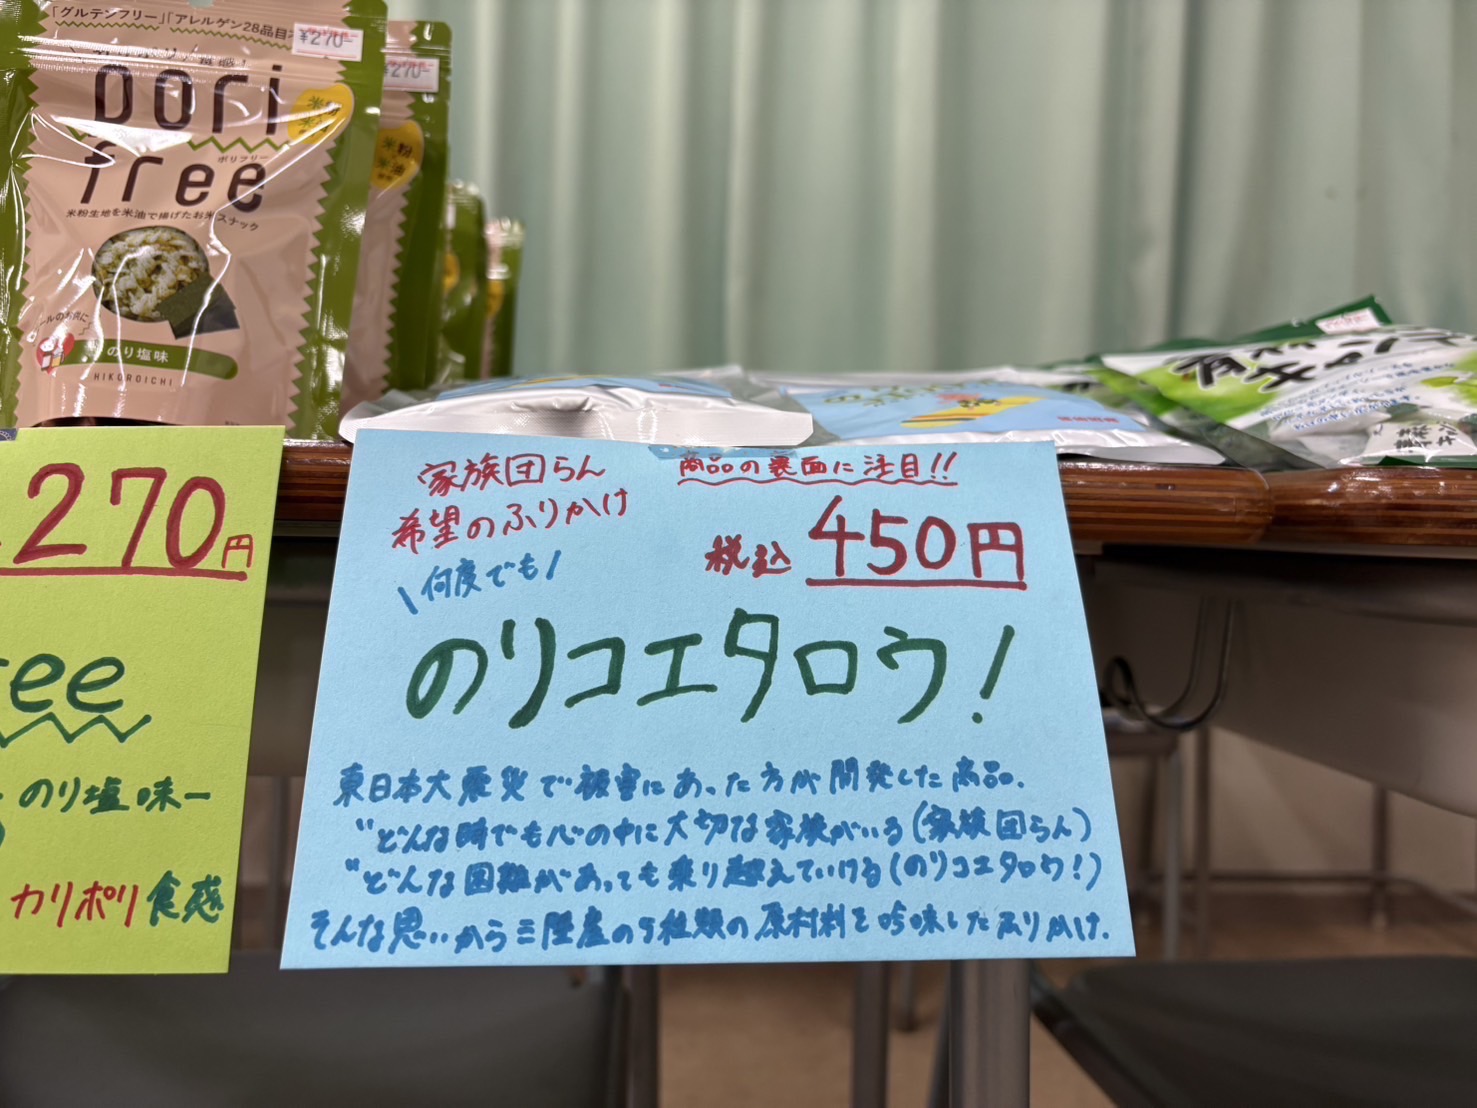 「グルテンフリー」「アレルゲン28品目
¥270-
¥270-
pori
free
ポリフリー
米粉
米油
米粉生地を米油で揚げたお米スナック
のり塩味
HIKOROICHI
270円
ee
のり塩味
カリポリ食感
家族団らん
希望のふりかけ
商品の裏面に注目!!
税込 450円
\何度でも/
のリコエタロウ!
東日本大震災で被害にあった方が開発した商品.
"どんな時でも心の中に大切な家族がいる(家族団らん)
"どんな困難があっても乗り越えていける(のリコエタロウ!)
そんな思いから三陸産の5種類の原材料を吟味したふりかけ.